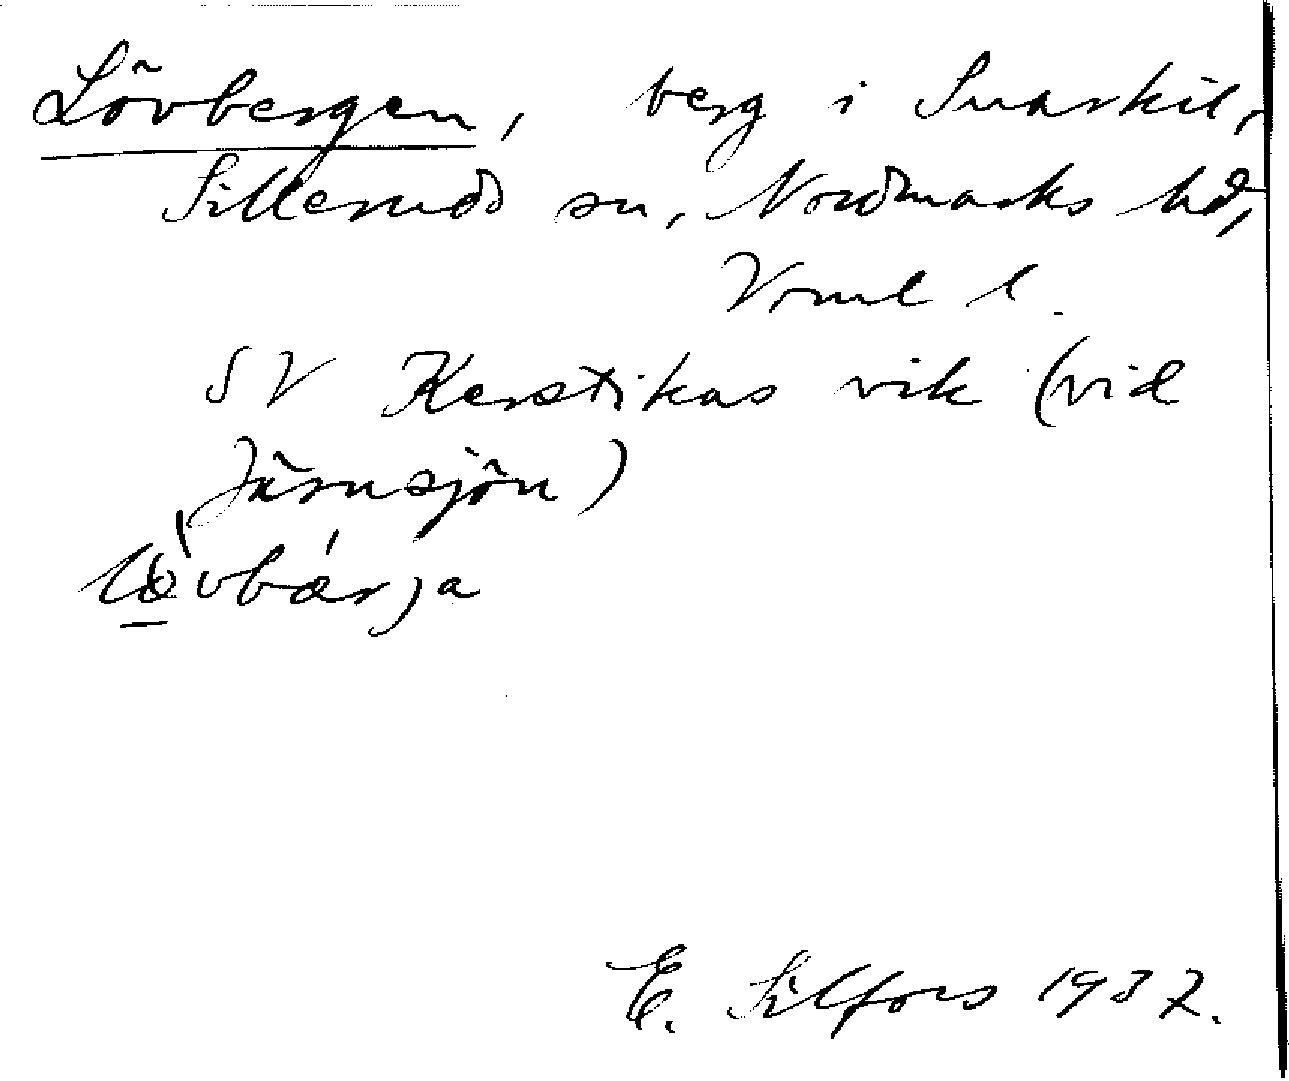 Lövbergen, berg i Snarkil,
Silleruds sn, Nordmarks hd,
Vrml l.
SV Kerstikas vik (vid
Järnsjön)
lövbærja
E. Silfors 1937.